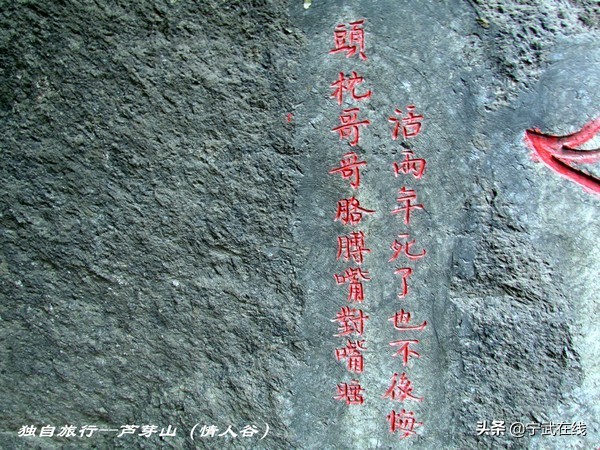 頭枕哥哥胳膊嘴對嘴
活兩年死了也不後悔
独自旅行—芦芽山（情人谷）
头条@宁武在线